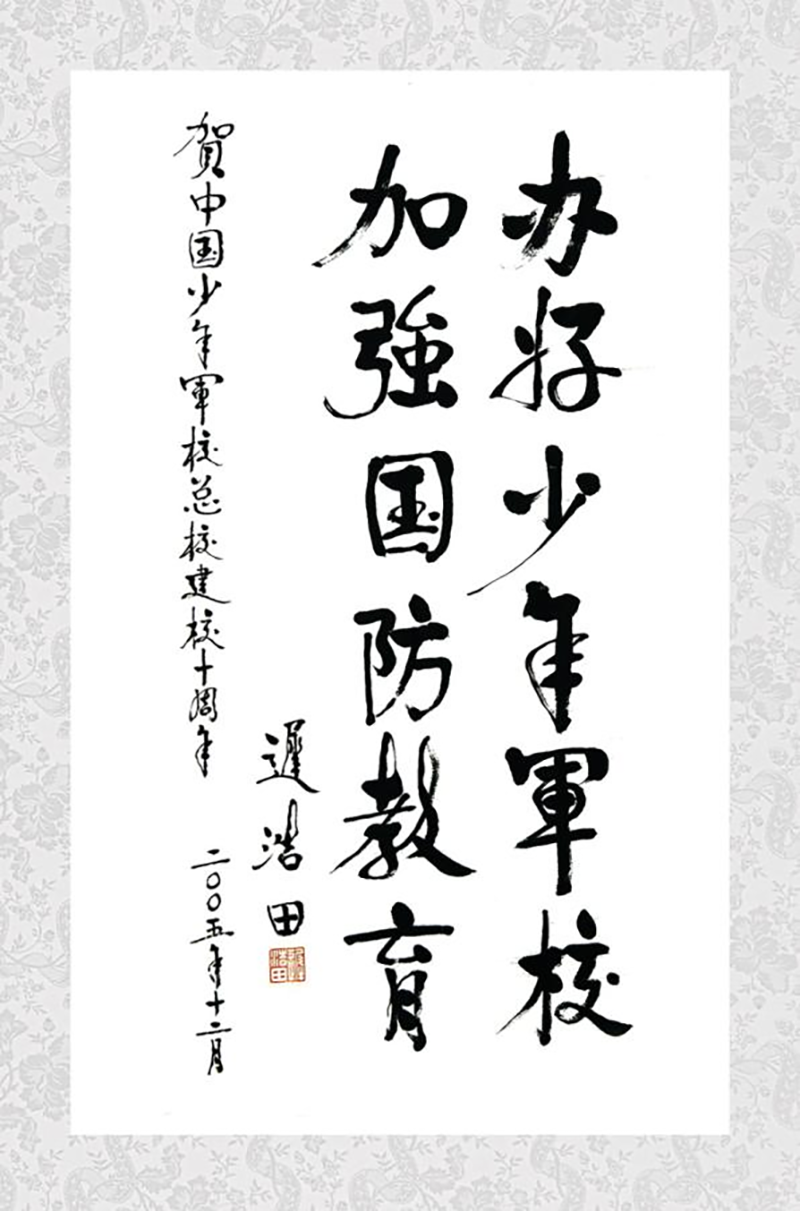 办好少年軍校
加強国防教育
遲浩田
賀中国少年軍校总校建校十周年
二〇〇五年十二月